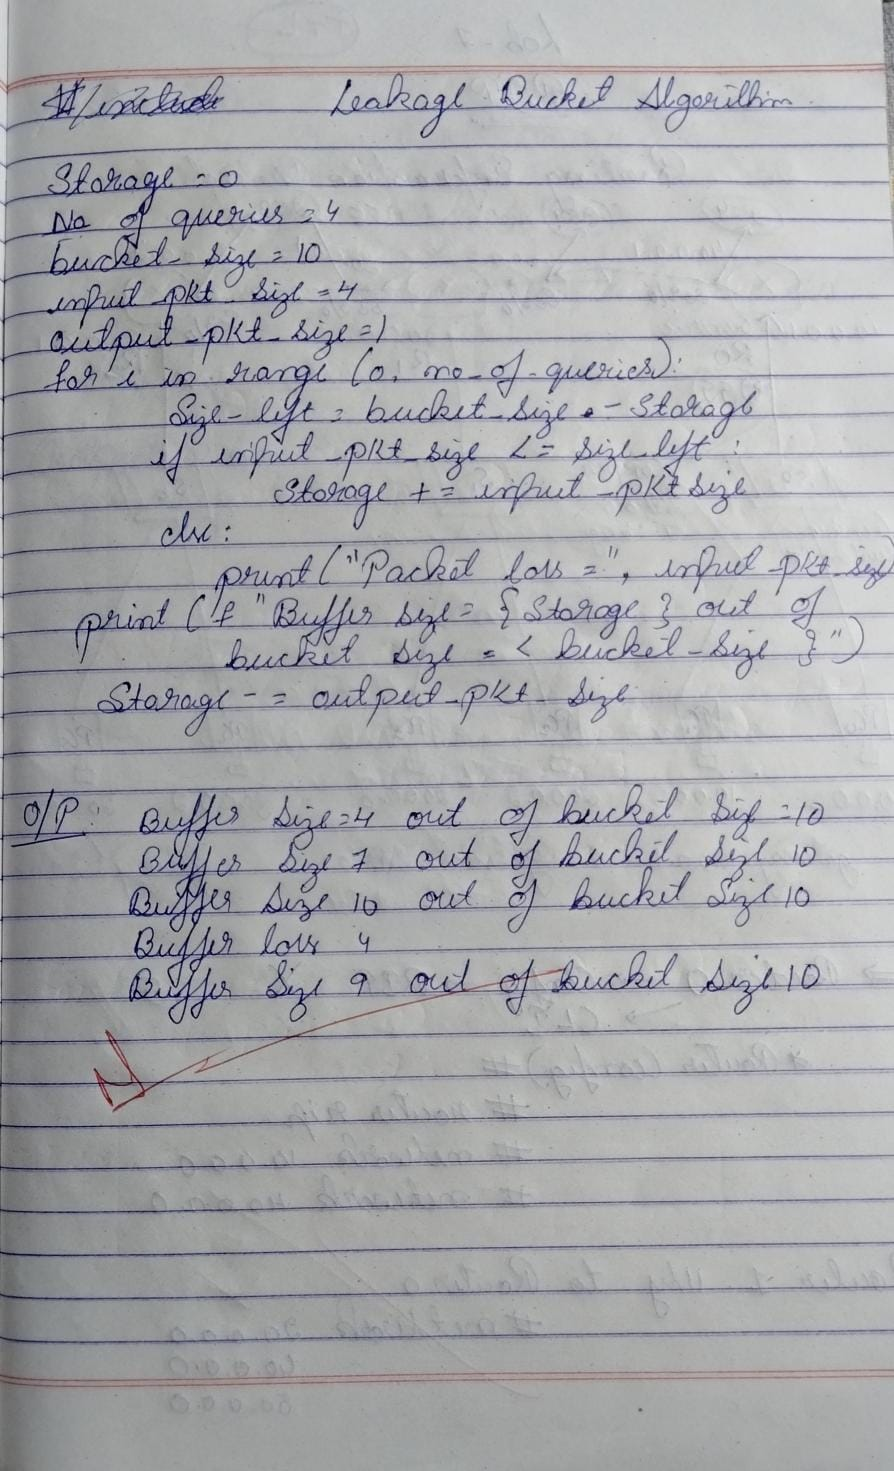 Leakage Bucket Algorithm.
Storage = 0
No of queries = 4
bucket_size = 10
input_pkt_size = 4
output_pkt_size = 1
for i in range (0, no_of_queries):
Size_left = bucket_size - Storage
if input_pkt_size <= size_left :
Storage += input_pkt size
else :
print ("Packet loss =", input_pkt_size)
print (f "Buffer size = {Storage} out of
bucket size = < bucket_size }")
Storage -= output_pkt_size
O/P : Buffer Size = 4 out of bucket Size = 10
Buffer Size 7 out of bucket Size 10
Buffer Size 10 out of bucket Size 10
Buffer loss 4
Buffer Size 9 out of bucket Size 10